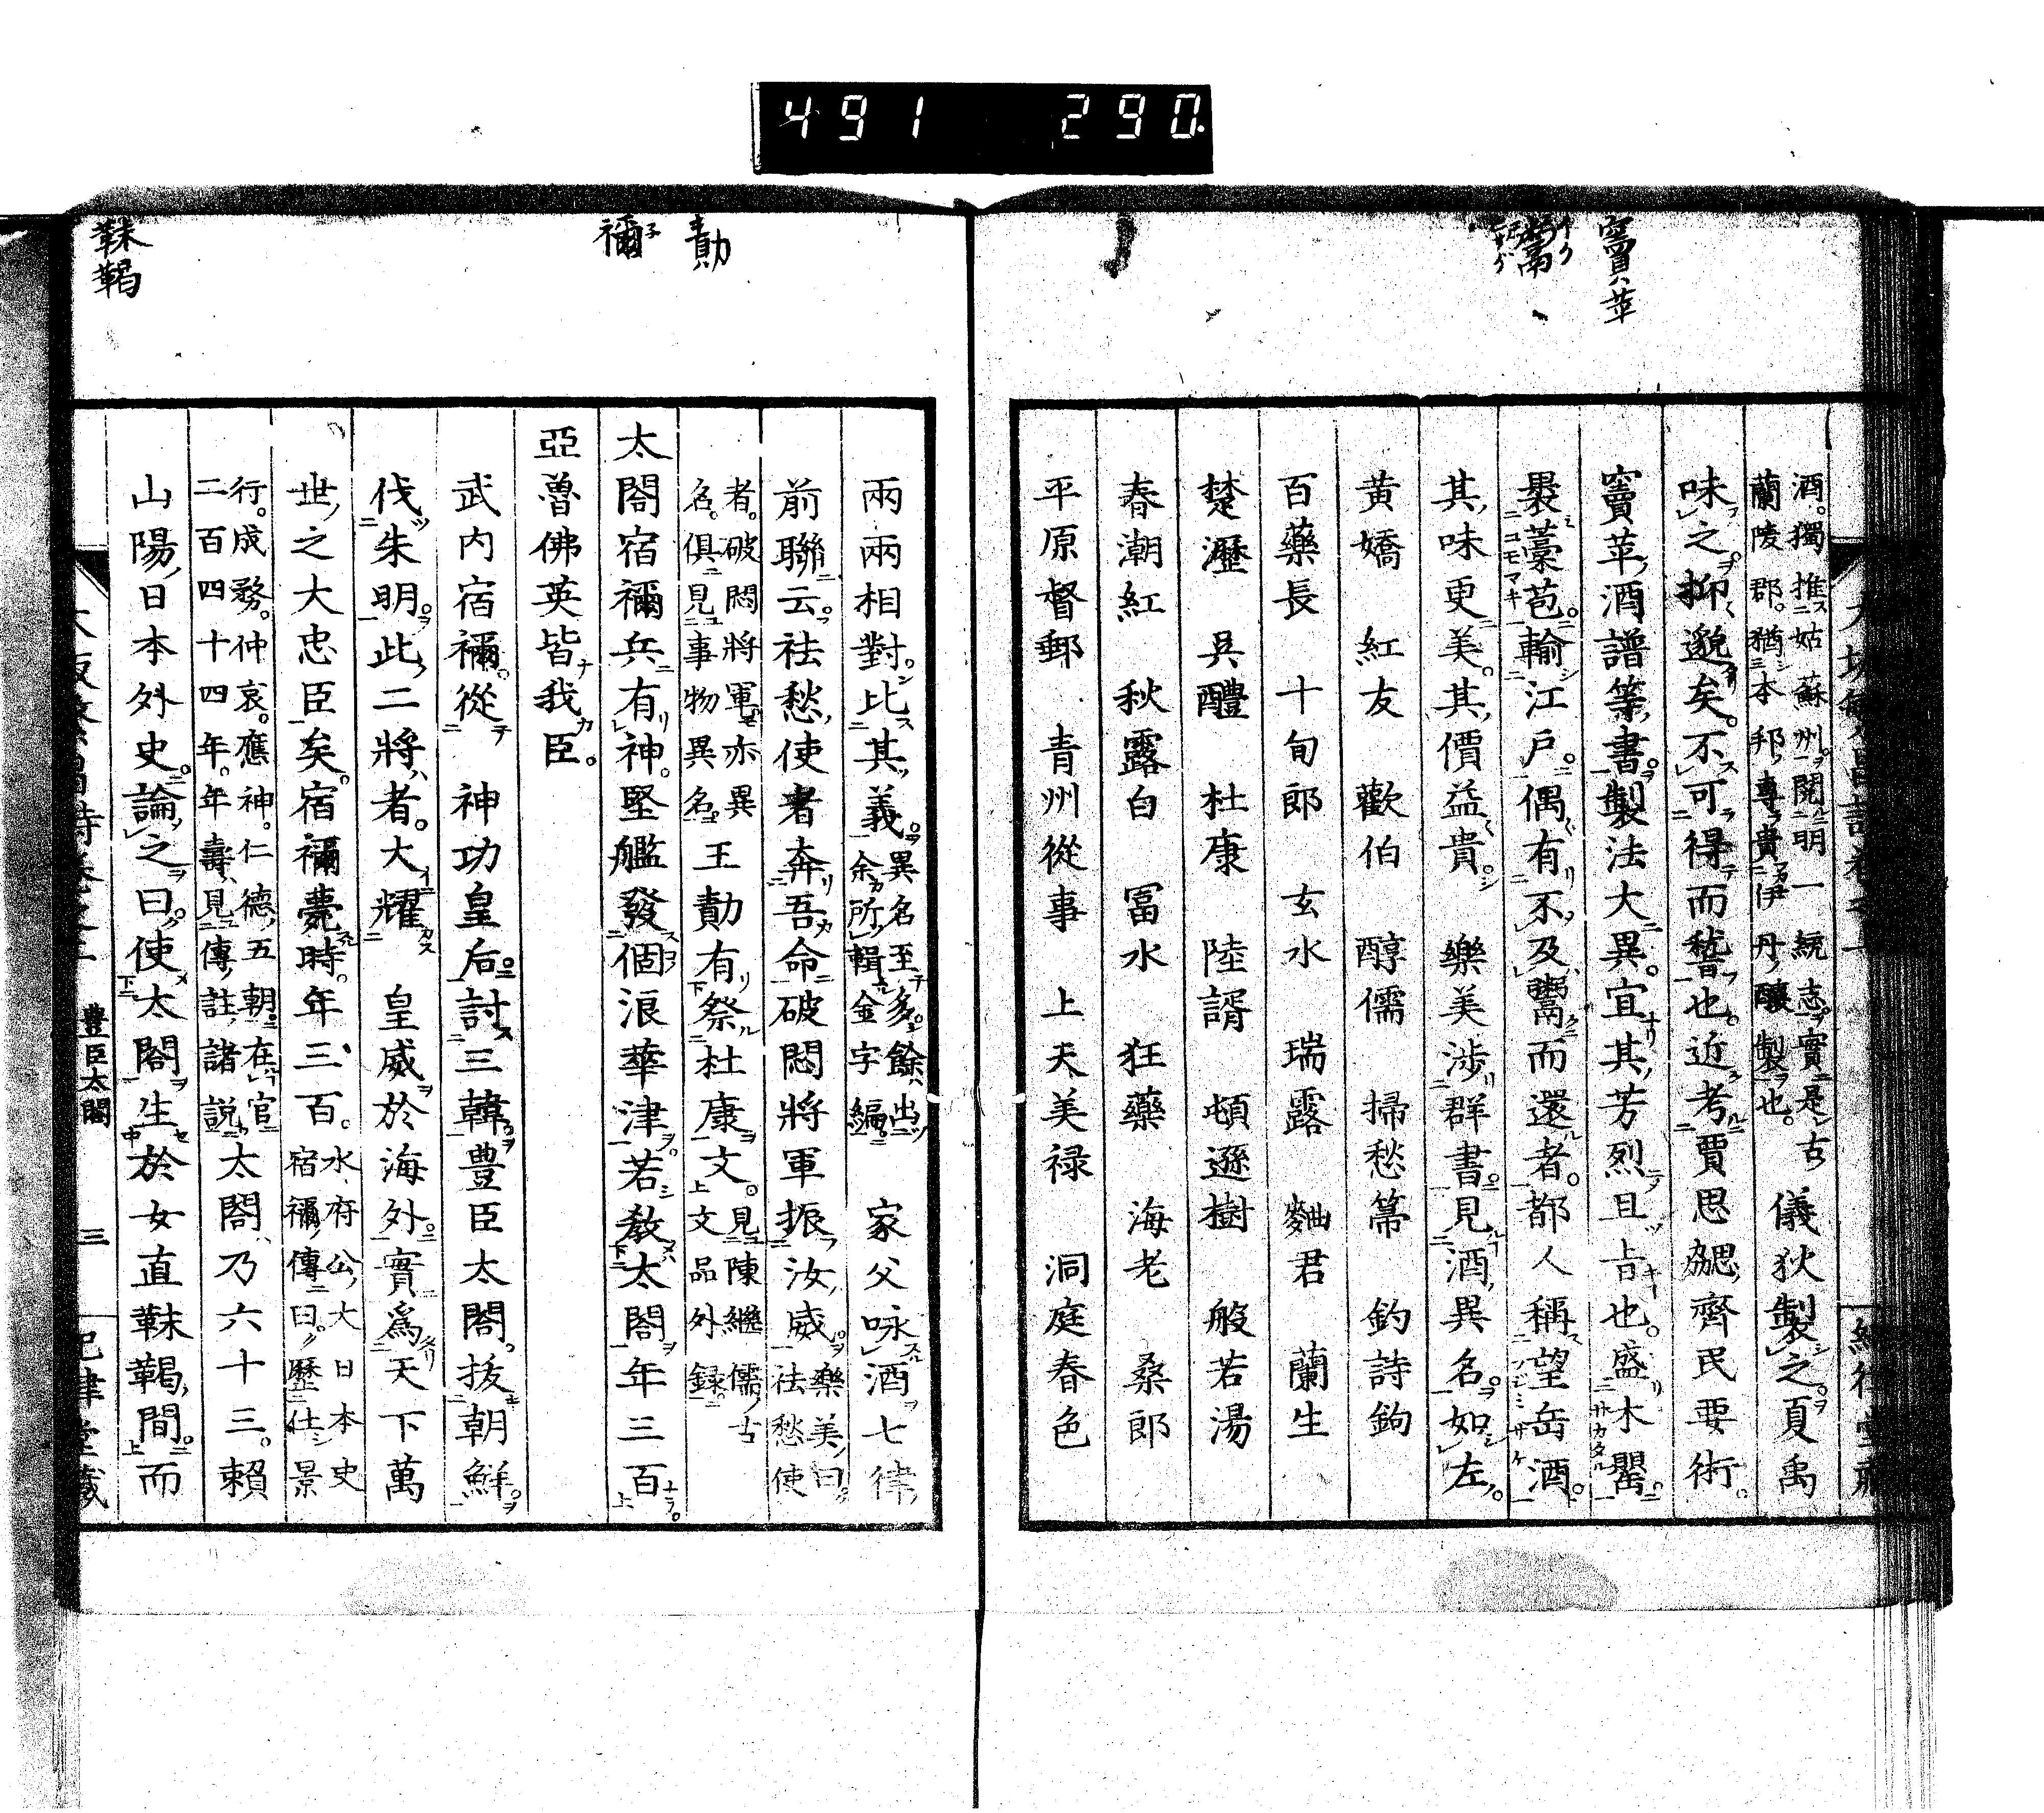 491 290
竇苹
鬻
酒。獨推姑蘇州。閱明一統志實是古
蘭陵郡。猶本邦專貴伊丹釀製也。儀狄製之。夏禹
味之。抑邈矣。不可得而稽也。近考賈思勰齊民要術。
竇苹酒譜等書。製法大異。宜其芳烈且㫖也。盛木罌。
褁藁苞。輸江戶。偶有不及鬻而還者。都人稱望岳酒。
其味更美。其價益貴。 樂美涉群書。見酒異名。如左。
黄嬌 紅友 歡伯 醇儒 掃愁箒 釣詩鉤
百藥長 十旬郎 玄水 瑞露 麯君 蘭生
楚瀝 呉醴 杜康 陸諝 頓遜樹 般若湯
春潮紅 秋露白 冨水 狂藥 海老 桑郎
平原督郵 青州從事 上天美禄 洞庭春色
勣
禰
靺鞨
兩兩相對。比其義。異名至多。餘出余所輯金字編。 家父咏酒七律。
前聯云。祛愁使者奔吾命。破悶將軍振汝威。樂美曰。祛愁使
者。破悶將軍。亦異名。俱見事物異名。王勣有祭杜康文。見陳繼儒古文品外録。
太閤宿禰兵有神。堅艦發個浪華津。若教太閤年三百。
亞魯佛英皆我臣。
武内宿禰。從 神功皇后。討三韓。豊臣太閤。拔朝鮮。
伐朱明。此二將者。大耀 皇威於海外。實爲天下萬
世之大忠臣矣。宿禰薨時。年三百。水府公大日本史宿禰傳曰。歷仕景
行。成務。仲哀。應神。仁德五朝。在官二百四十四年。年壽見傳註諸説。太閤乃六十三。賴
山陽日本外史論之曰。使太閤生於女直靺鞨間。而
豊臣太閤 三